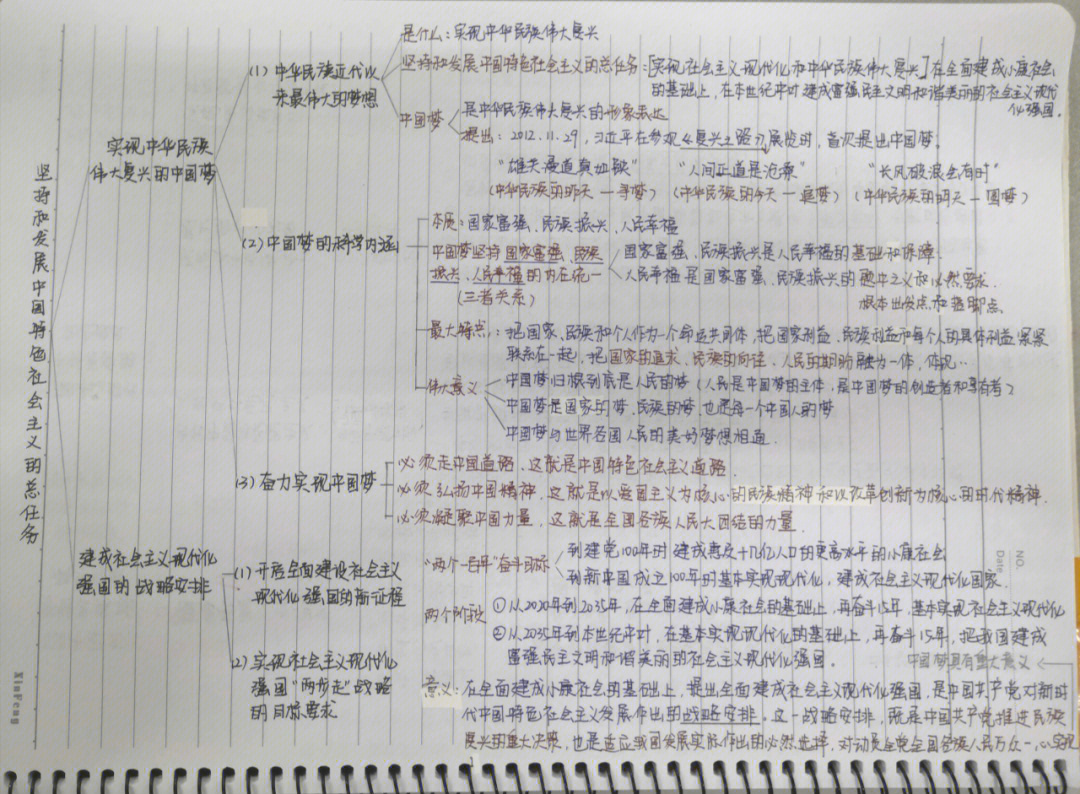 坚持和发展中国特色社会主义的总任务
实现中华民族
伟大复兴的中国梦
(1) 中华民族近代以
来最伟大的梦想
是什么：实现中华民族伟大复兴
坚持和发展中国特色社会主义的总任务：[实现社会主义现代化和中华民族伟大复兴] 在全面建成小康社会
的基础上，在本世纪中叶建成富强民主文明和谐美丽的社会主义现代
化强国。
中国梦
是中华民族伟大复兴的形象表达
提出：2012.11.29，习近平在参观《复兴之路》展览时，首次提出中国梦。
“雄关漫道真如铁” “人间正道是沧桑” “长风破浪会有时”
(中华民族的昨天—寻梦) (中华民族的今天—追梦) (中华民族的明天—圆梦)
(2) 中国梦的科学内涵
本质：国家富强、民族振兴、人民幸福
中国梦坚持国家富强、民族
振兴、人民幸福的内在统一
(三者关系)
国家富强、民族振兴是人民幸福的基础和保障.
人民幸福是国家富强、民族振兴的题中之义和必然要求.
根本出发点和落脚点.
最大特点：把国家、民族和个人作为一个命运共同体，把国家利益、民族利益和每个人的具体利益紧紧
联系在一起，把国家的追求、民族的向往、人民的期盼融为一体，体现…
伟大意义
中国梦归根到底是人民的梦 (人民是中国梦的主体，是中国梦的创造者和享有者)
中国梦是国家的梦、民族的梦，也是每一个中国人的梦
中国梦与世界各国人民的美好梦想相通.
(3) 奋力实现中国梦
必须走中国道路、这就是中国特色社会主义道路.
必须弘扬中国精神、这就是以爱国主义为核心的民族精神和以改革创新为核心的时代精神.
必须凝聚中国力量，这就是全国各族人民大团结的力量.
建成社会主义现代化
强国的战略安排
(1) 开启全面建设社会主义
现代化强国的新征程
“两个一百年”奋斗目标
到建党100年时建成惠及十几亿人口的更高水平的小康社会
到新中国成立100年时基本实现现代化，建成社会主义现代化国家.
两个阶段
①从2020年到2035年，在全面建成小康社会的基础上，再奋斗15年，基本实现社会主义现代化
②从2035年到本世纪中叶，在基本实现现代化的基础上，再奋斗15年，把我国建成
富强民主文明和谐美丽的社会主义现代化强国.
中国梦具有重大意义
(2) 实现社会主义现代化
强国“两步走”战略
的目标要求
意义：在全面建成小康社会的基础上，提出全面建成社会主义现代化强国，是中国共产党对新时
代中国特色社会主义发展作出的战略安排。这一战略安排，既是中国共产党推进民族
复兴的重大决策，也是适应我国发展实际作出的必然选择，对动员全党全国各族人民万众一心实现
NO.
Date
XinFeng
1